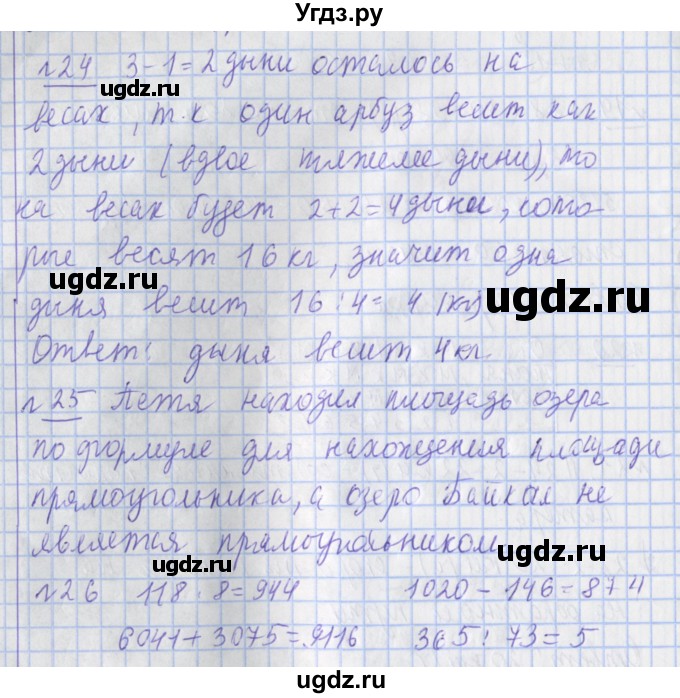 Угдз.ру
№24 3-1=2 дыни осталось на
ugdz.ru
весах, т.к один арбуз весит как
2 дыни (вдвое тяжелее дыни), то
на весах будет 2+2=4 дыни, кото-
рые весят 16 кг, значит одна
ugdz.ru
ugdz.ru
дыня весит 16:4= 4 (кг)
Ответ: дыня весит 4 кг.
№25 Петя находил площадь озера
ugdz.ru
по формуле для нахождения площади
прямоугольника, а озеро Байкал не
является прямоугольником
ugdz.ru
ugdz.ru
№26 118·8=944 1020-146=874
6041+3075=9116 365:73=5
ugdz.ru